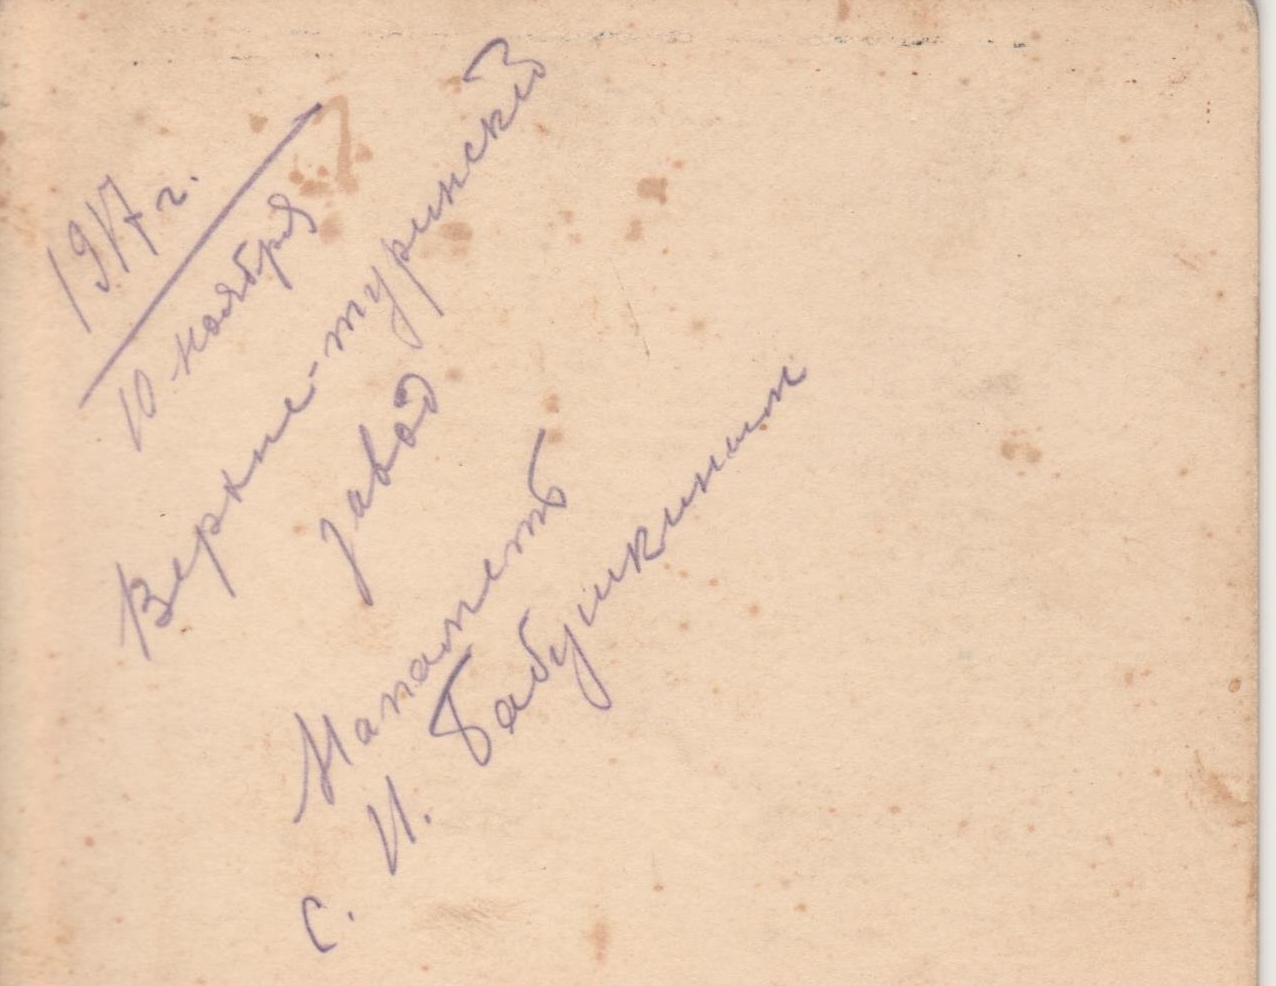 1917 г.
10 ноября
Верхне-туринский
завод
с. И. Бабушкиным